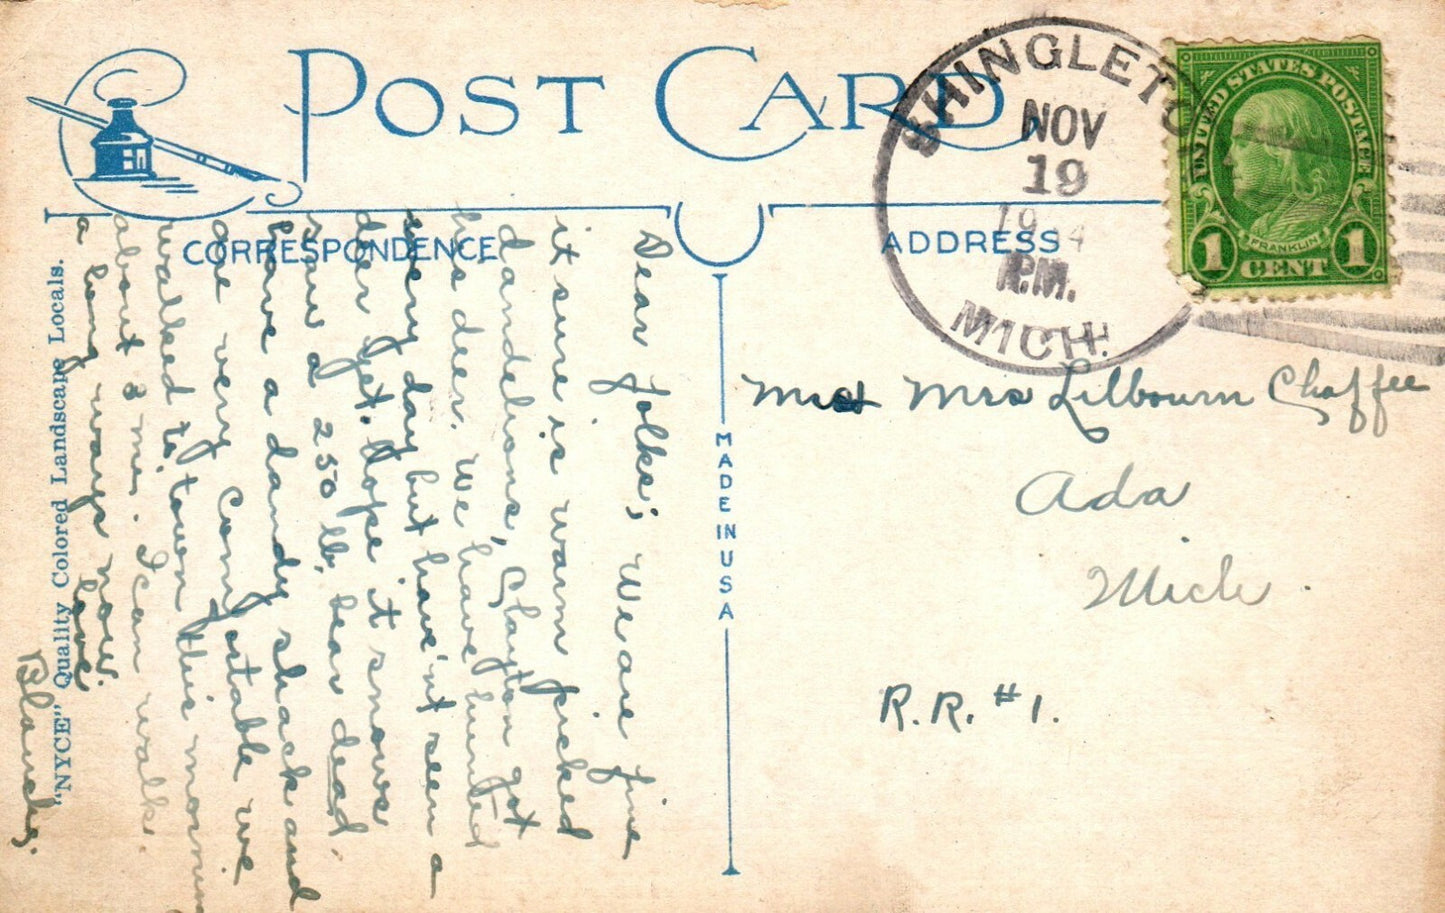 POST CARD
CORRESPONDENCE
ADDRESS
SHINGLETO
NOV
19
P.M.
MICH.
UNITED STATES POSTAGE
FRANKLIN
1 CENT 1
Dear folks; We are fine
it sure is warm picked
dandelions, Clayton got
his deer. We have hunted
every day but have'nt seen a
deer yet. Hope it snows
saw a 250 lb. bear dead.
have a dandy shack and
are very comfortable we
walked to town this morning
about 3 mi. I can walk
a long ways now.
Love
Blanche.
"NYCE" Quality Colored Landscape Locals.
MADE IN USA
Mrs Lilbourn Chaffee
Ada
Mich.
R.R. #1.